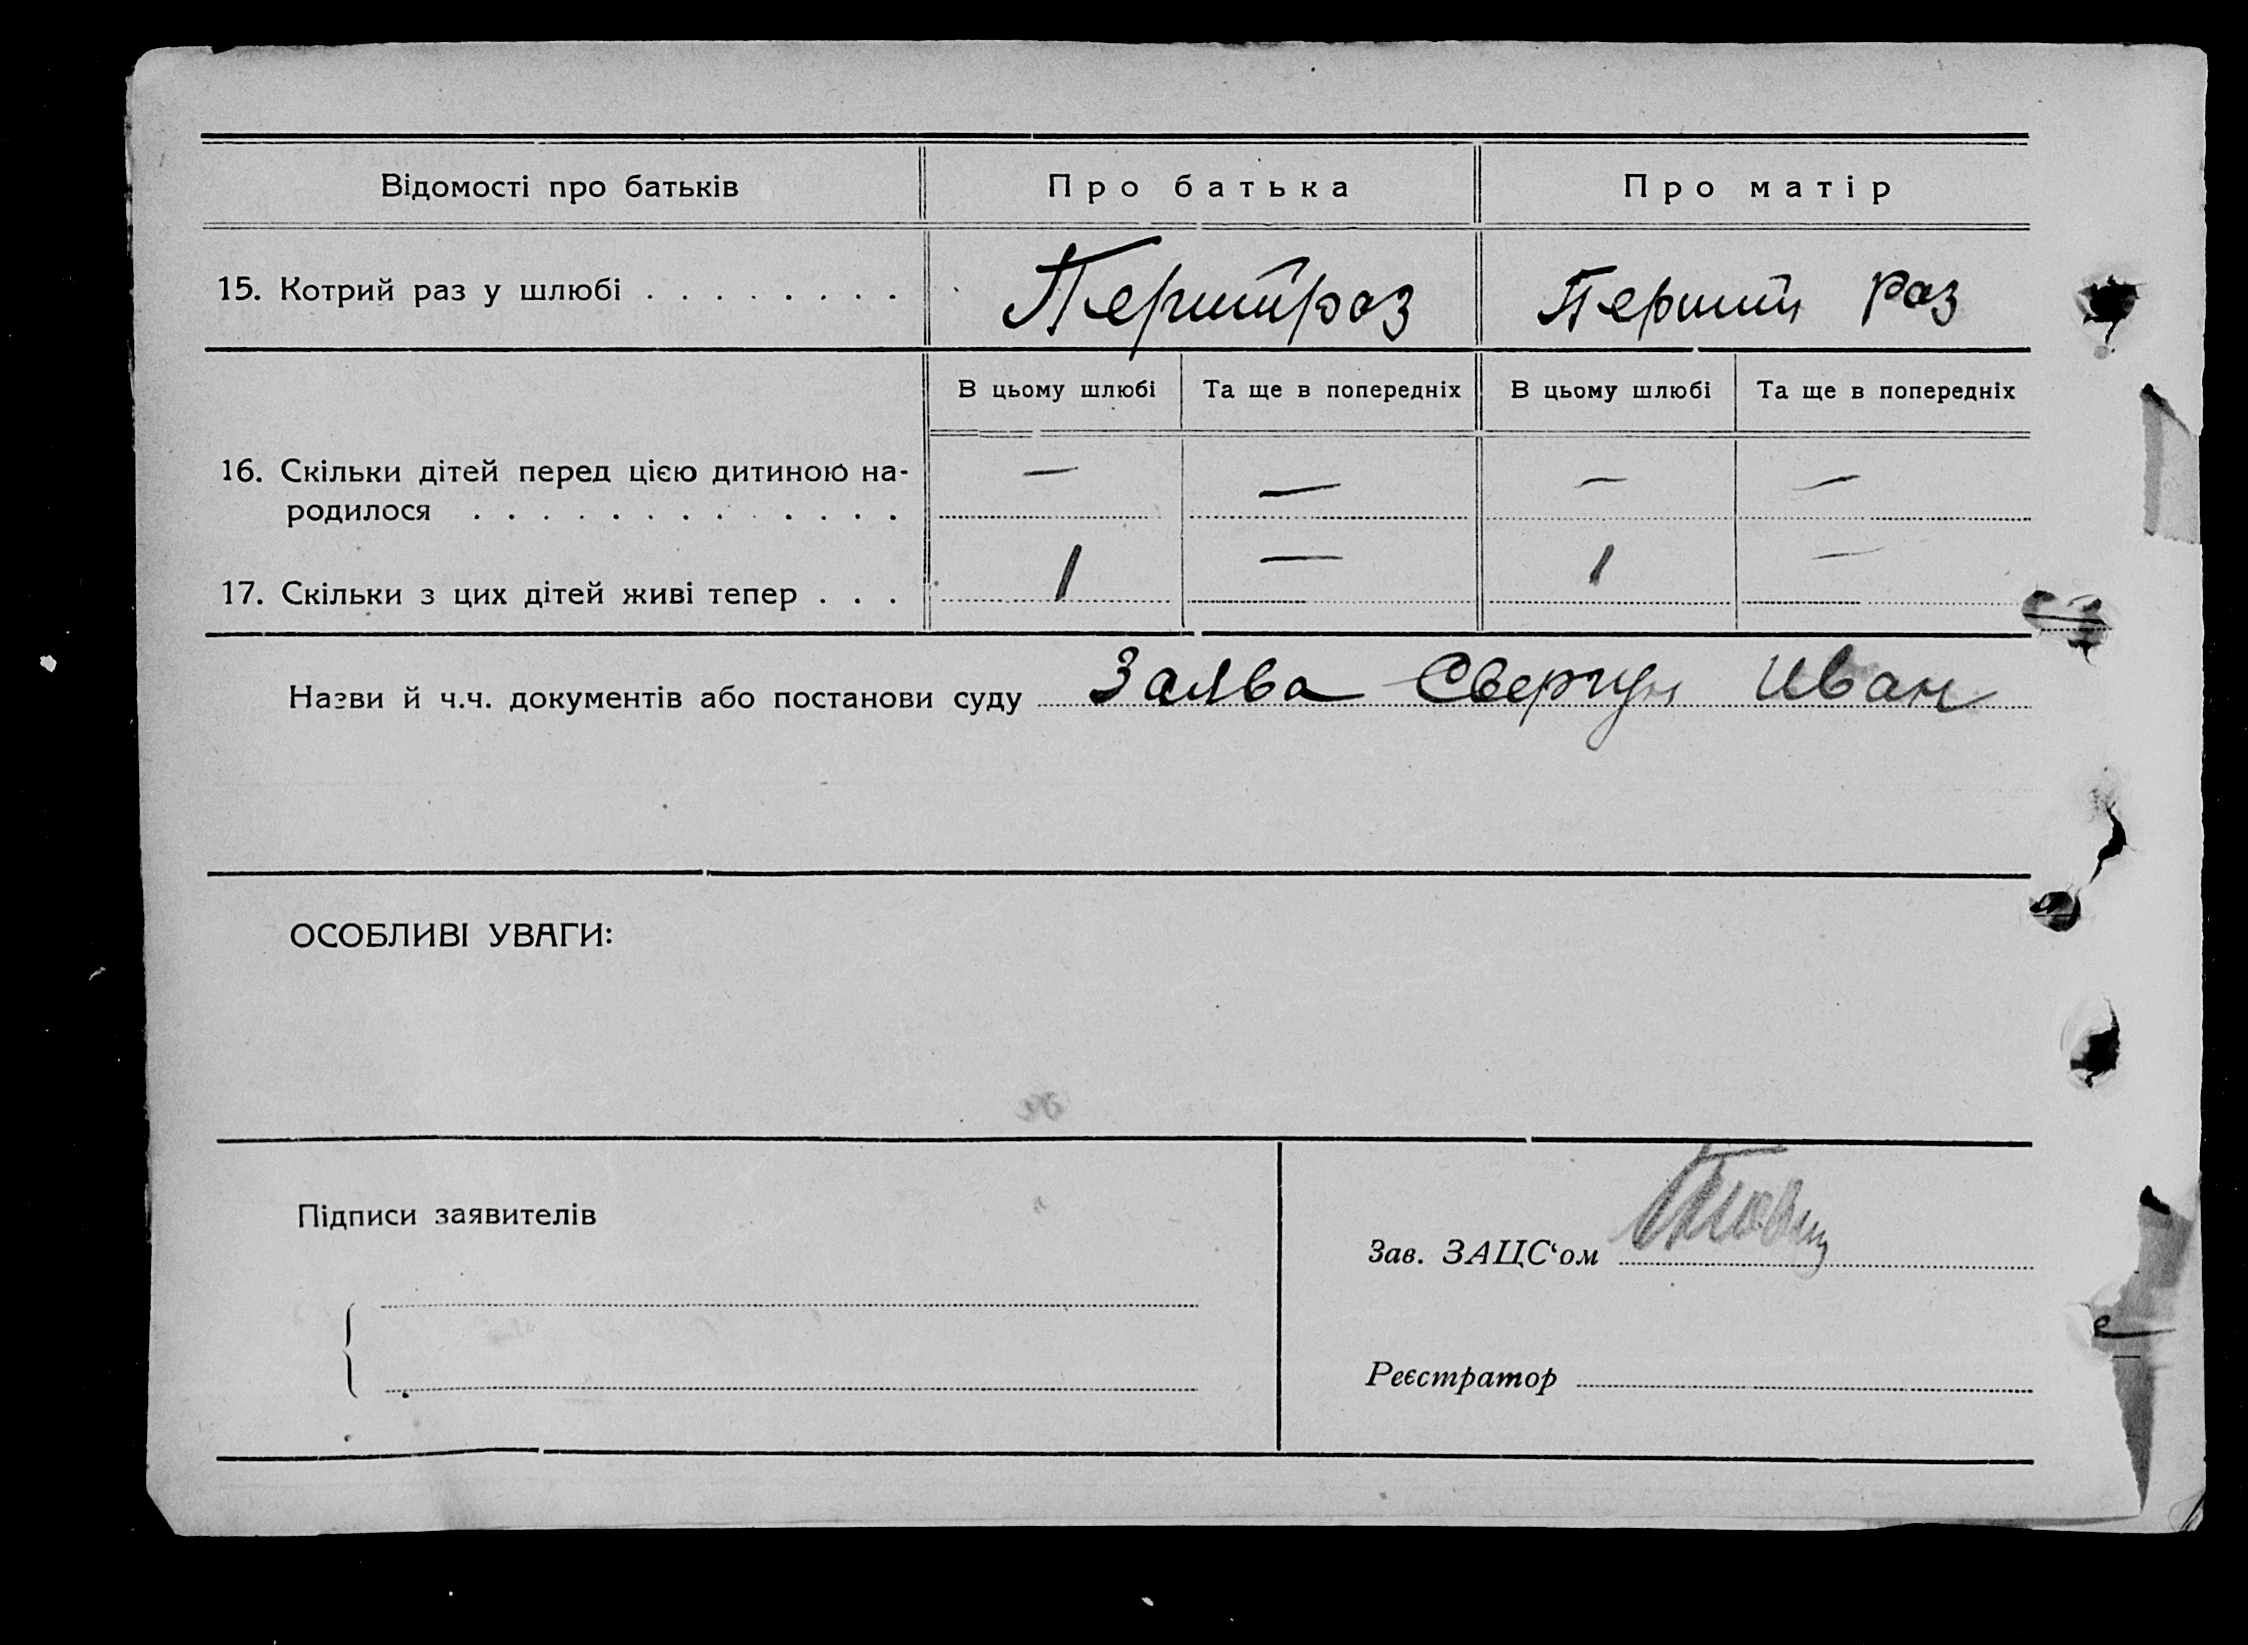 Відомості про батьків Про батька Про матір
15. Котрий раз у шлюбі . . . . . . . . Перший раз Перший раз
В цьому шлюбі Та ще в попередніх В цьому шлюбі Та ще в попередніх
16. Скільки дітей перед цією дитиною на- — — — —
родилося . . . . . . . . . . . . .
17. Скільки з цих дітей живі тепер . . . 1 — 1 —
Назви й ч.ч. документів або постанови суду Заява Свергун Иван
ОСОБЛИВІ УВАГИ:
Підписи заявителів
Зав. ЗАЦС‘ом
Реєстратор